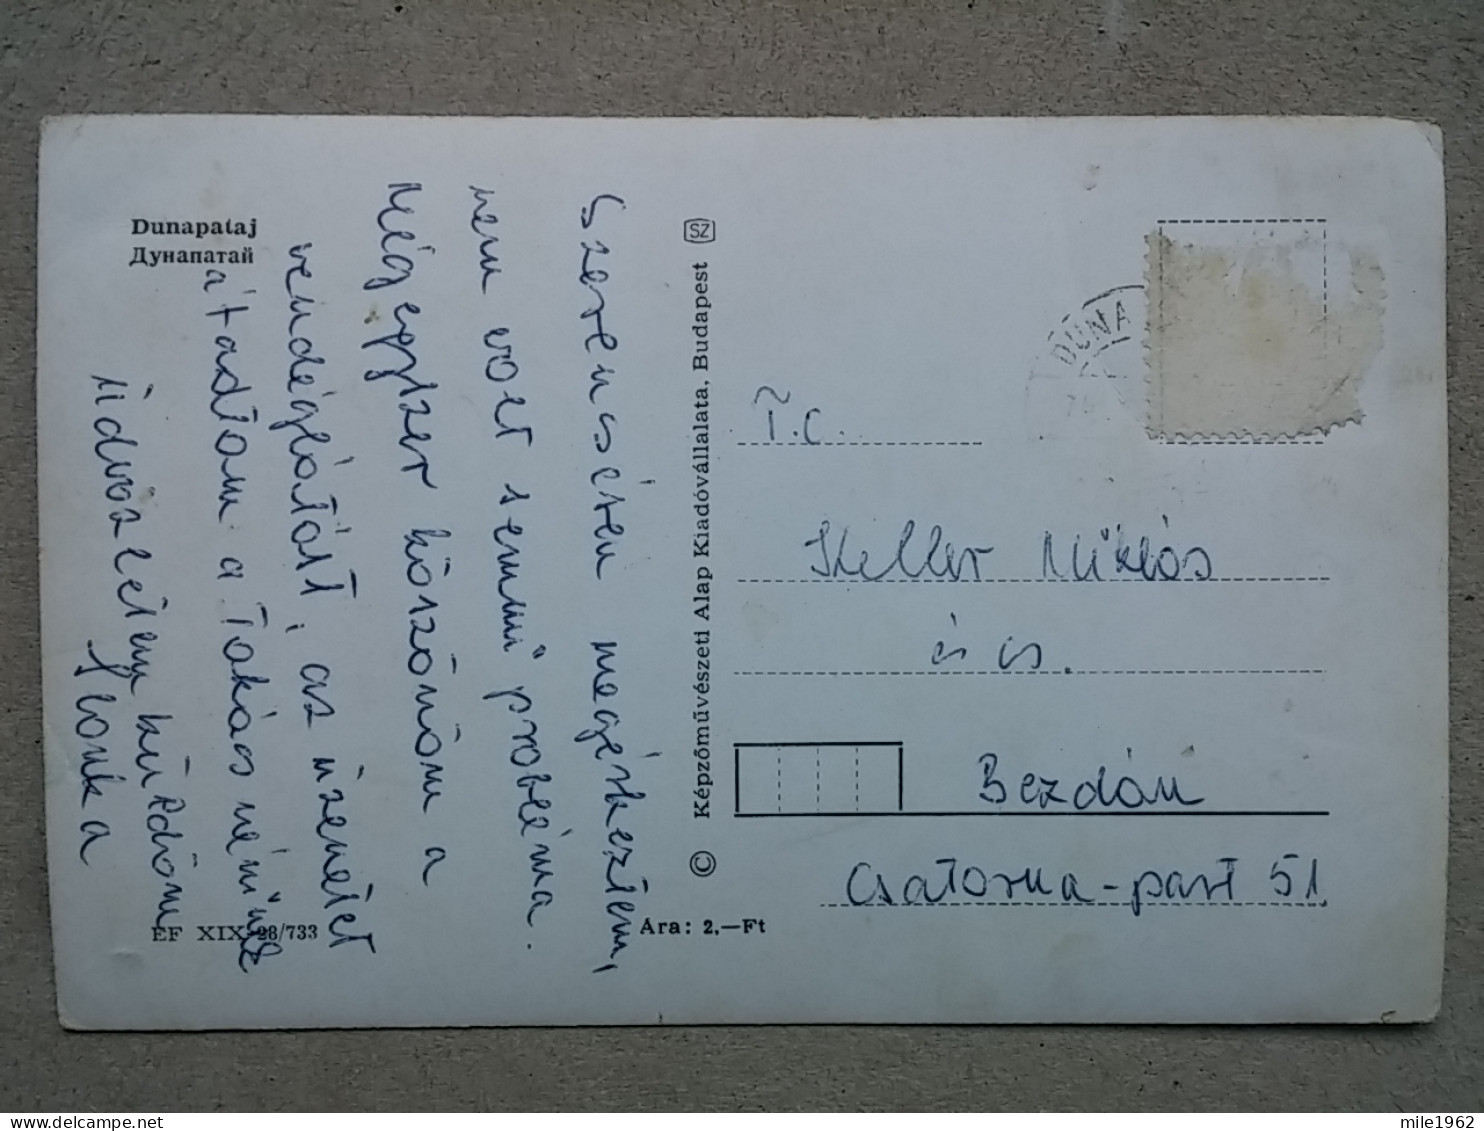 Dunapataj
Дунапатай
Szerencsésen megérkeztem,
nem volt semmi probléma.
Mégegyszer köszönöm a
vendéglátást, az üzenetet
átadtam a Takács néninek
Üdvözletem küldöm
Ilonka
EF XIX 28/733
Ára: 2,—Ft
© Képzőművészeti Alap Kiadóvállalata, Budapest SZ
DUNA
T.c.
Keller Miklós
és cs.
Bezdán
Csatorna-part 51
mile1962